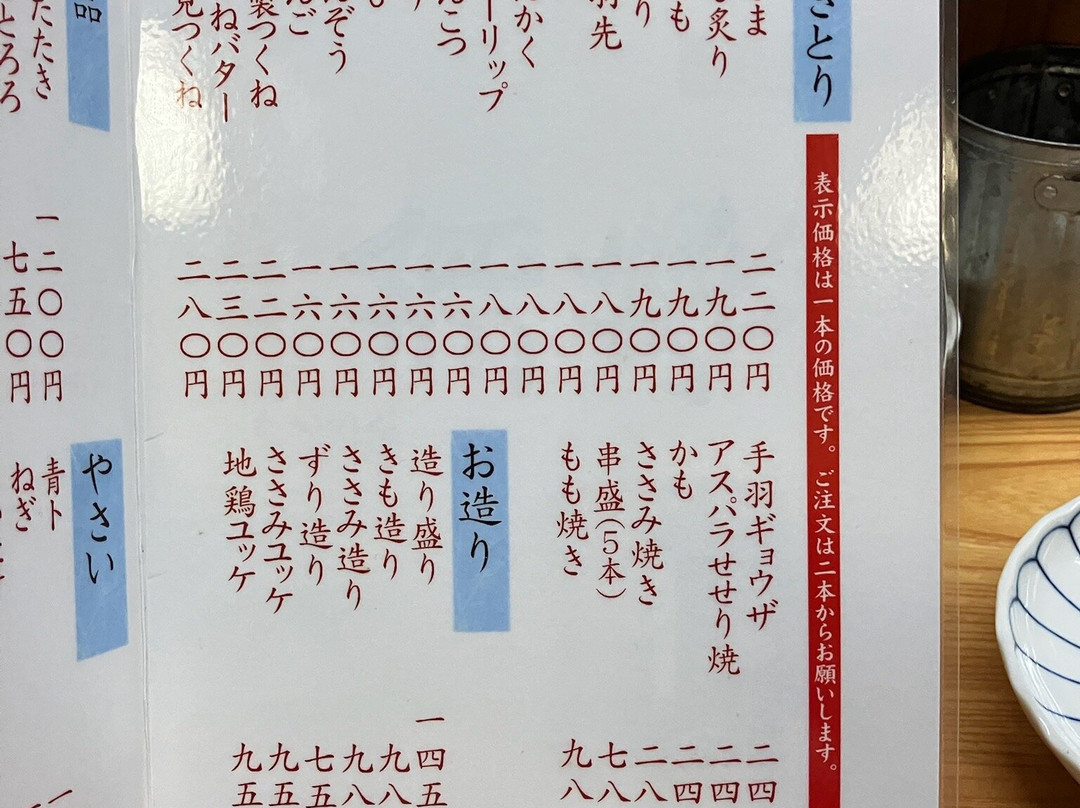 とり
表示価格は一本の価格です。ご注文は二本からお願いします。
ま 二二〇円
炙り 一九〇円
も 一九〇円
り 一九〇円
羽先 一八〇円
一八〇円
かく 一八〇円
ーリップ 一八〇円
こつ 一六〇円
一六〇円
一六〇円
ぞう 一六〇円
ご 一六〇円
製つくね 二二〇円
ねバター 二三〇円
見つくね 二八〇円
手羽ギョウザ 二四
アスパラせせり焼 二四
かも 二四
ささみ焼き 二八
串盛(5本) 七八
もも焼き 九八
お造り
造り盛り 一四五
きも造り 九八
ささみ造り 九八
ずり造り 七五
ささみユッケ 九五
地鶏ユッケ 九五
品
たたき 一二〇〇円
とろろ 七五〇円
やさい
青ト
ねぎ